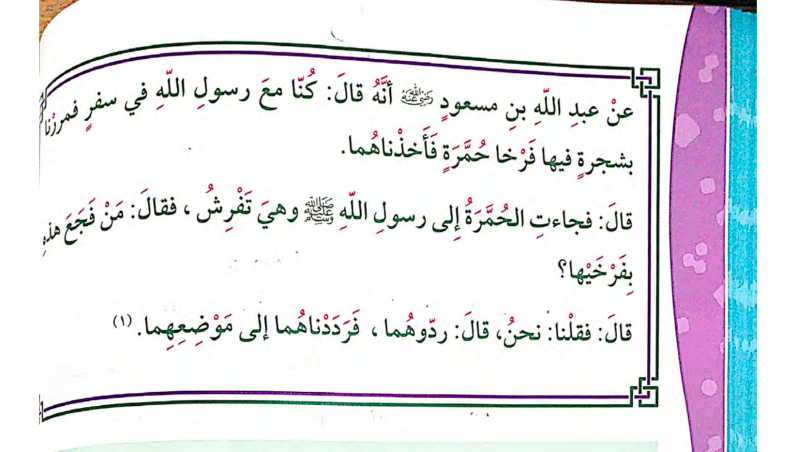 عنْ عبدِ اللّهِ بنِ مسعودٍ ﵁ أنَّهُ قالَ: كُنّا معَ رسولِ اللّهِ في سفرٍ فمررْنا
بشجرةٍ فيها فَرْخا حُمَّرَةٍ فَأَخذْناهُما.
قالَ: فجاءتِ الحُمَّرَةُ إلى رسولِ اللّهِ ﷺ وهيَ تَفْرِشُ ، فقالَ: مَنْ فَجَعَ هذهِ
بِفَرْخَيْها؟
قالَ: فقلْنا: نحنُ، قالَ: ردّوهُما ، فَرَدَدْناهُما إلى مَوْضِعِهِما. (١)